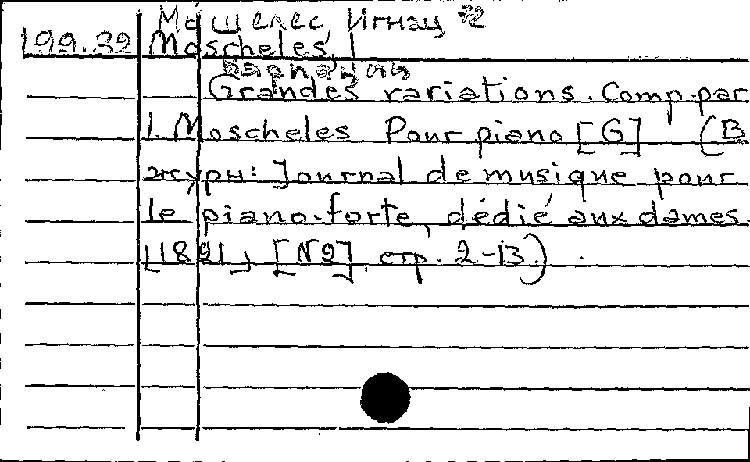 Мошелес, Игнац
199.32 Moscheles, I
Вариации
Grandes variations. Comp. par
I. Moscheles Pour piano [G] (В
журн: Journal de musique pour
le piano-forte, dédié aux dames.
[1821] [N2] стр. 2-13.)